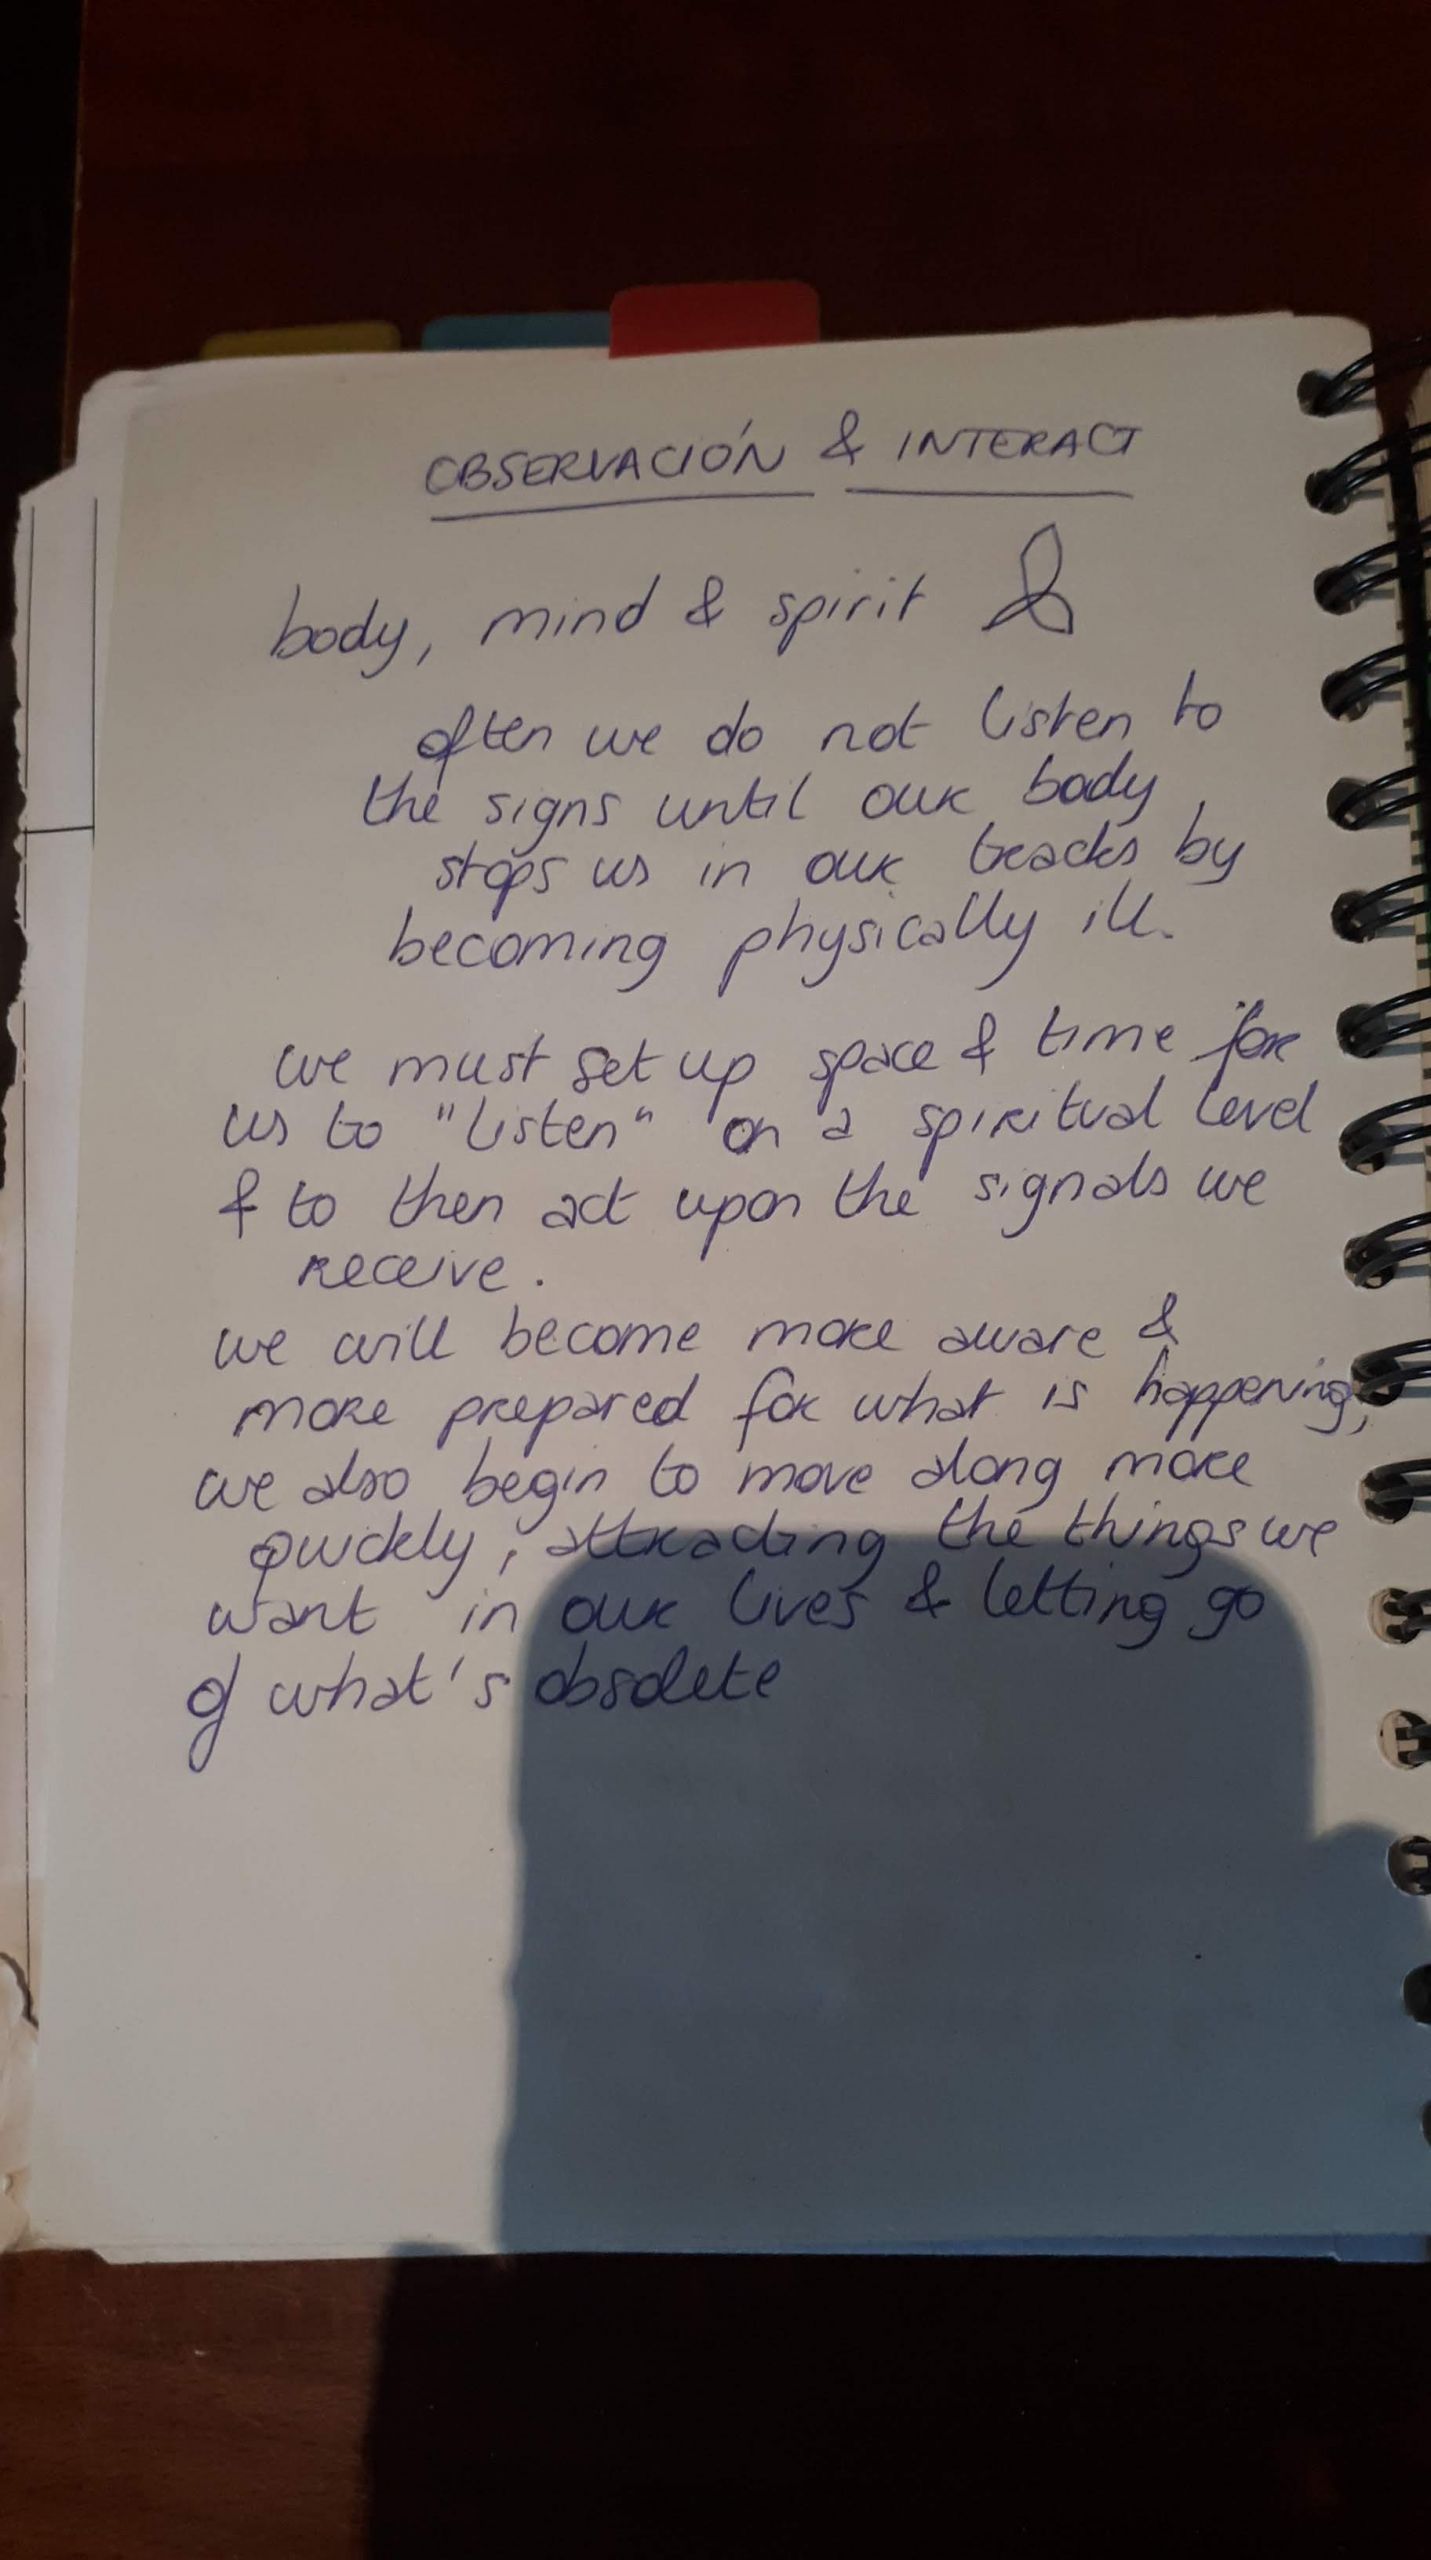 OBSERVACIÓN & INTERACT
body, mind & spirit
often we do not listen to
the signs until our body,
stops us in our tracks by
becoming physically ill.
we must set up space & time for
us to "listen" on a spiritual level
& to then act upon the signals we
receive.
we will become more aware &
more prepared for what is happening,
we also begin to move along more
quickly, attracting the things we
want in our lives & letting go
of what's obsolete